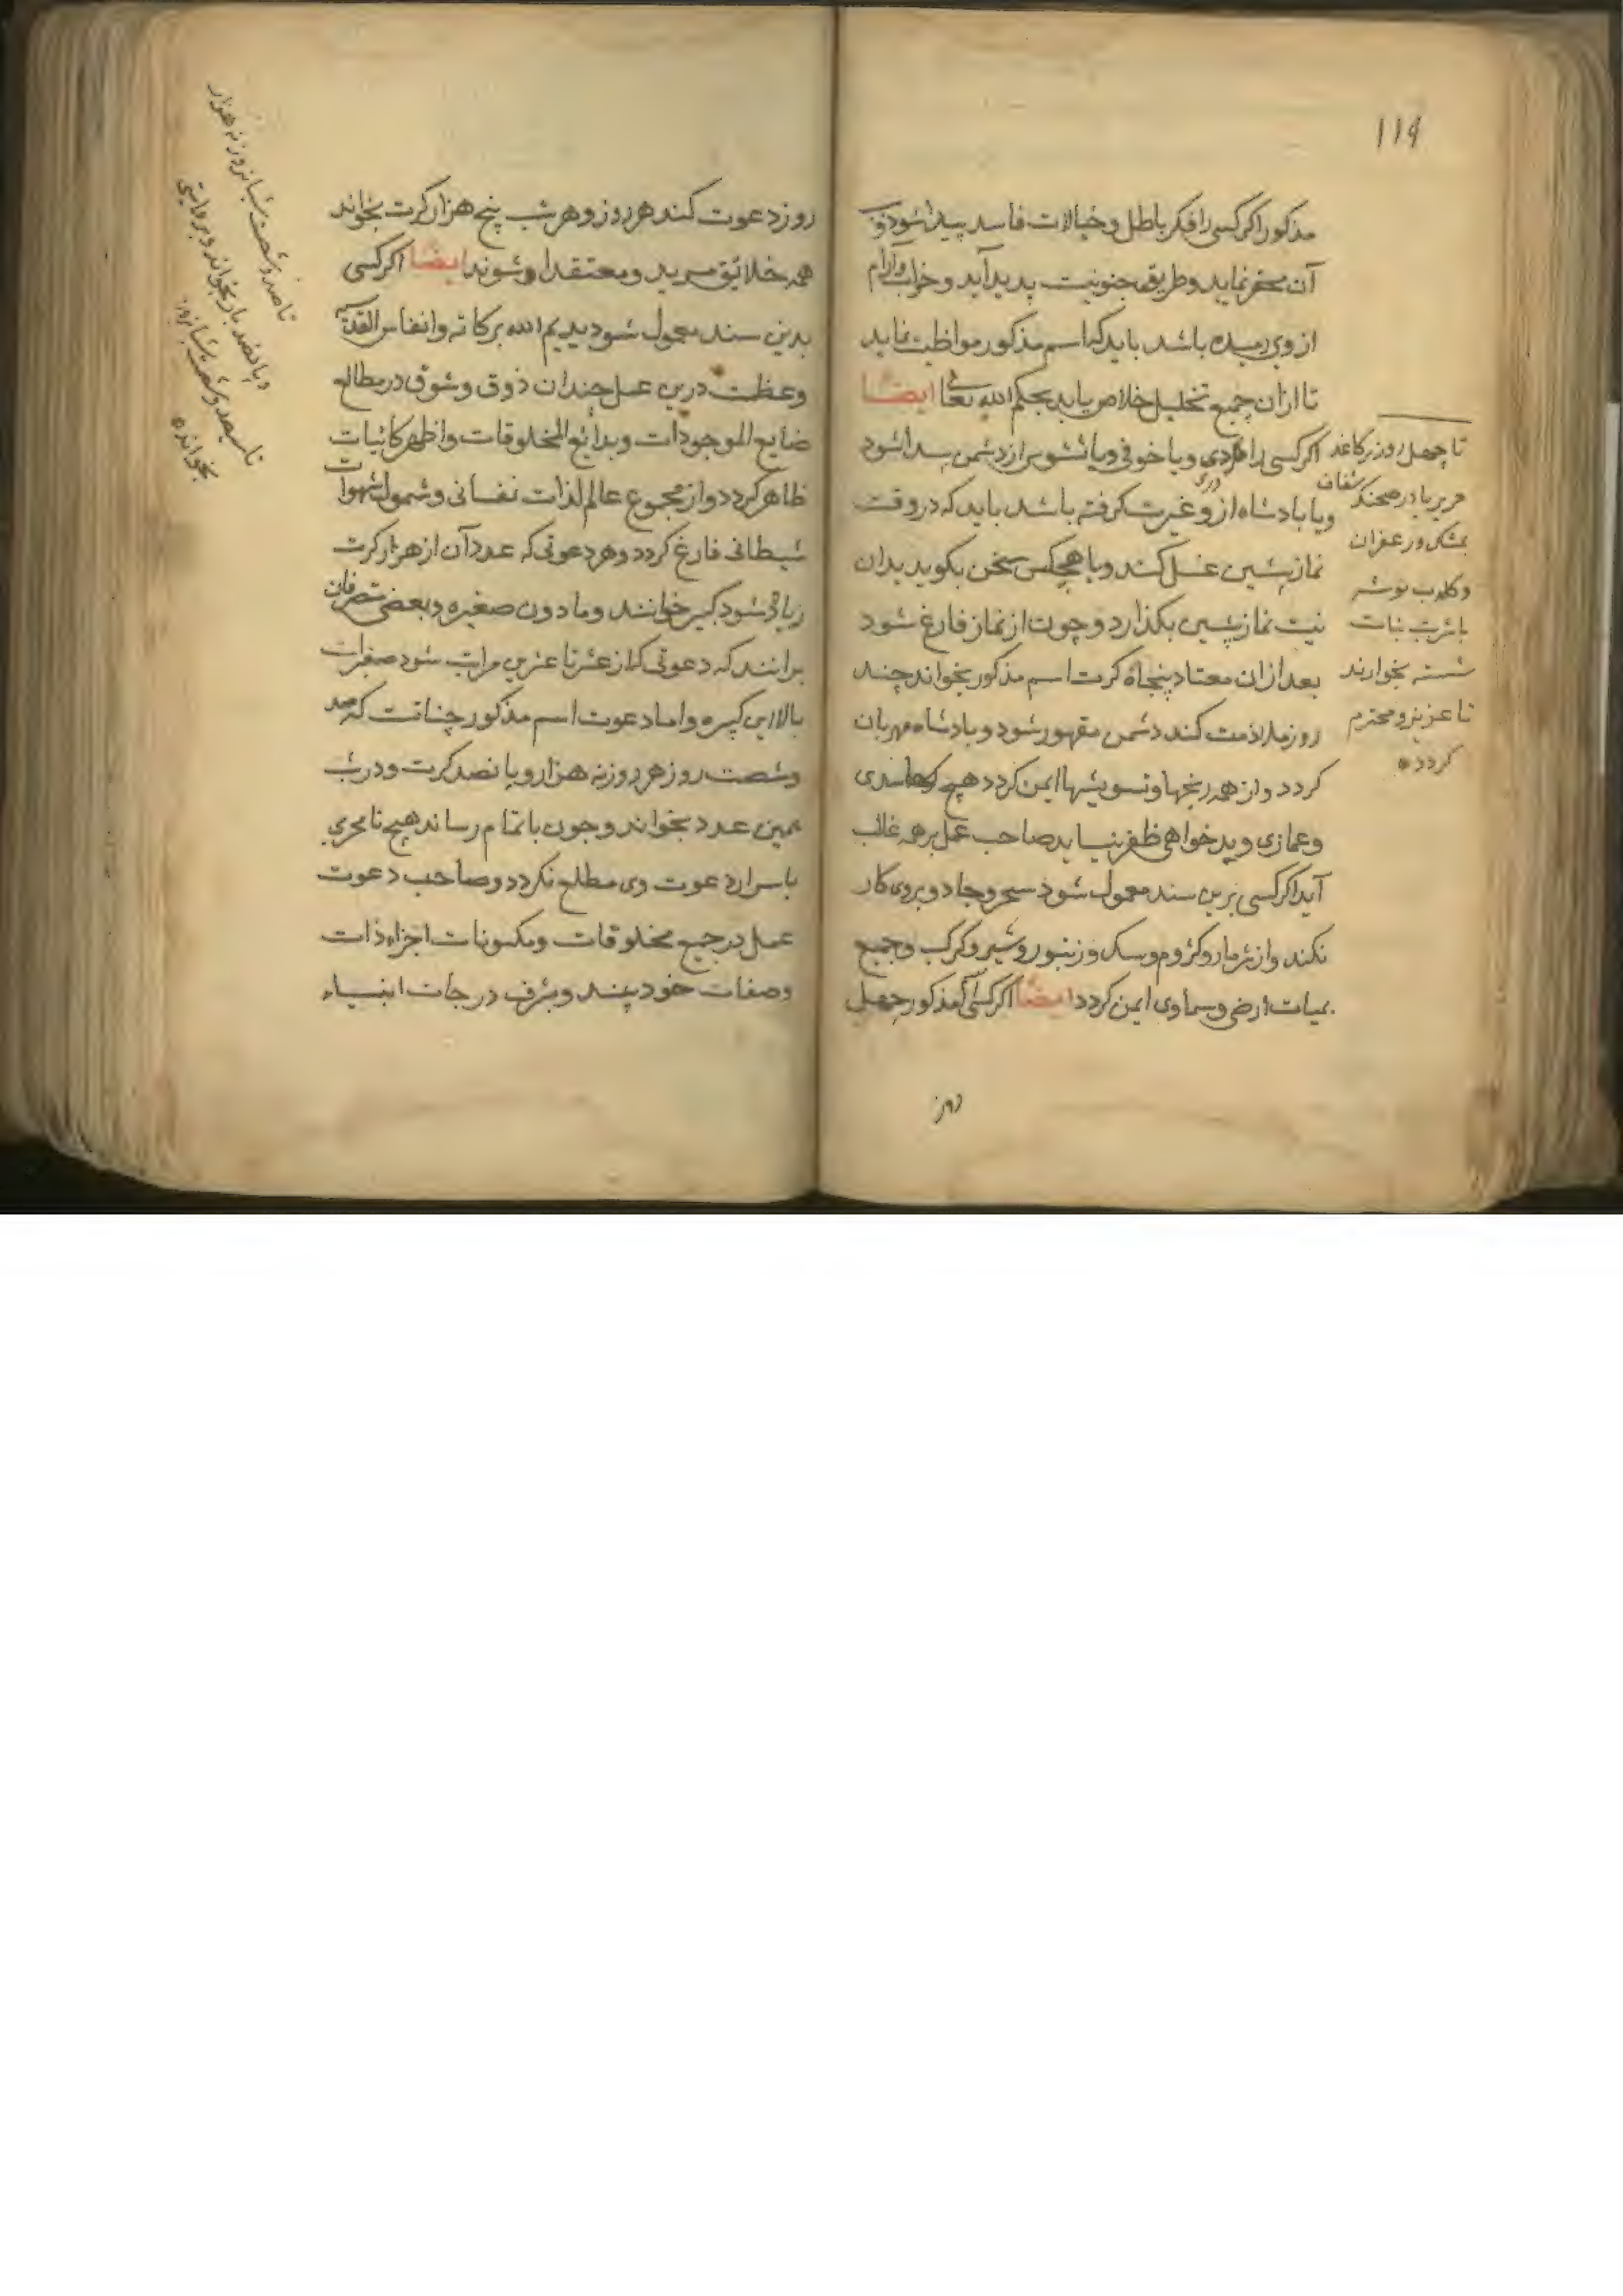 ۱۱۹
مذکور اکر کسی را فکر باطل و خیالات فاسد پیدا شود و
آن محقر نماید و طریق جنونیت پدید آید و خواب و آرام
از وی رمیده باشد باید که اسم مذکور مواظبت نماید
تا ازان جمیع تخلیل خلاص یابد بحکم الله تعالی ایضا
اکر کسی را دردی و یا خوفی و یا تشویش از دشمن پیدا شود
و یا بادشاه از و غیرت کرفته باشد باید که در وقت
نماز پشین غسل کند و با هیچکس سخن بکوید بدان
نیت نماز پشین بکذارد و چون از نماز فارغ شود
بعد ازان معتاد پنجاه کرت اسم مذکور بخواند چند
روز ملازمت کند دشمن مقهور شود و بادشاه مهربان
کردد و از همه رنجها و تسویشها ایمن کردد هیچ حاسدی
و غمازی و بدخواهی ظفر نیابد صاحب عمل بر همه غالب
آید اکر کسی برین سند معمول شود سحر و جادو بروی کار
نکند و از شر مار و کژدم و سک و زنبور و شیر و کرک و جمیع
بلیات ارضی و سماوی ایمن کردد ایضا اکر کسی مذکور چهل
روز
تا چهل روز بر کاغد
حریر یا در صحنک شفاف
بمشک و زعفران
و کلاب نوشته
با شربت نبات
شسته بخوارند
تا عزیز و محترم
کردد
روز دعوت کند هر روز و هر شب پنج هزار کرت بخواند
همه خلائق مرید و معتقد او شوند ایضا اکر کسی
بدین سند معمول شود بدیم الله برکاته و انفاس القدسیه
و عظمت درین عمل چندان ذوق و شوق در مطالع
صنایع الموجودات و بدائع المخلوقات و اظهر کائنات
ظاهر کردد و از مجموع عالم لذات نفسانی و شمول شهوات
شیطانی فارغ کردد و هر دعوتی که عدد آن از هزار کرت
زیادتی شود کبیر خوانند و مادون صغیره و بعضی متصرفان
برانند که دعوتی که از عشر تا عشرین مراتب شود صغیرات
بالا این کبیره و اما دعوت اسم مذکور چنانست که صد
و شصت روز هر روز نه هزار و پانصد کرت و در شب
همین عدد بخواند و چون باتمام رساند هیچ نامحرمی
باسرار دعوت وی مطلع نکردد و صاحب دعوت
عمل در جمیع مخلوقات و مکونات اجزاء ذات
و صفات خود بیند و بشرف درجات انبیاء
تا صد و شصت شبانروز نه هزار
و پانصد بار بخواند و بروایتی
تا سیصد و شصت شبانروز
بخواند